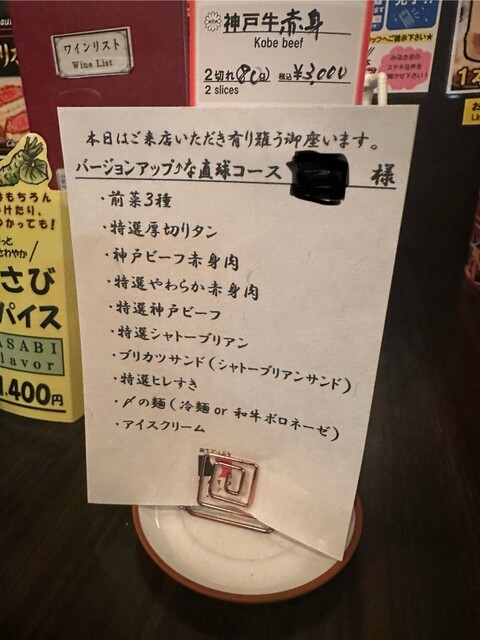 ワインリスト
Wine List
神戸牛赤身
Kobe beef
2切れ(80g) 税込¥3,000
2 slices
本日はご来店いただき有り難う御座います。
バージョンアップ⤴な直球コース 様
・前菜3種
・特選厚切りタン
・神戸ビーフ赤身肉
・特選やわらか赤身肉
・特選神戸ビーフ
・特選シャトーブリアン
・ブリカツサンド(シャトーブリアンサンド)
・特選ヒレすき
・〆の麺(冷麺 or 和牛ボロネーゼ)
・アイスクリーム
はもちろん
つけたり、
つかっても!
さわやか
さび
パイス
ASABI
lavor
1,400円
みなさまの